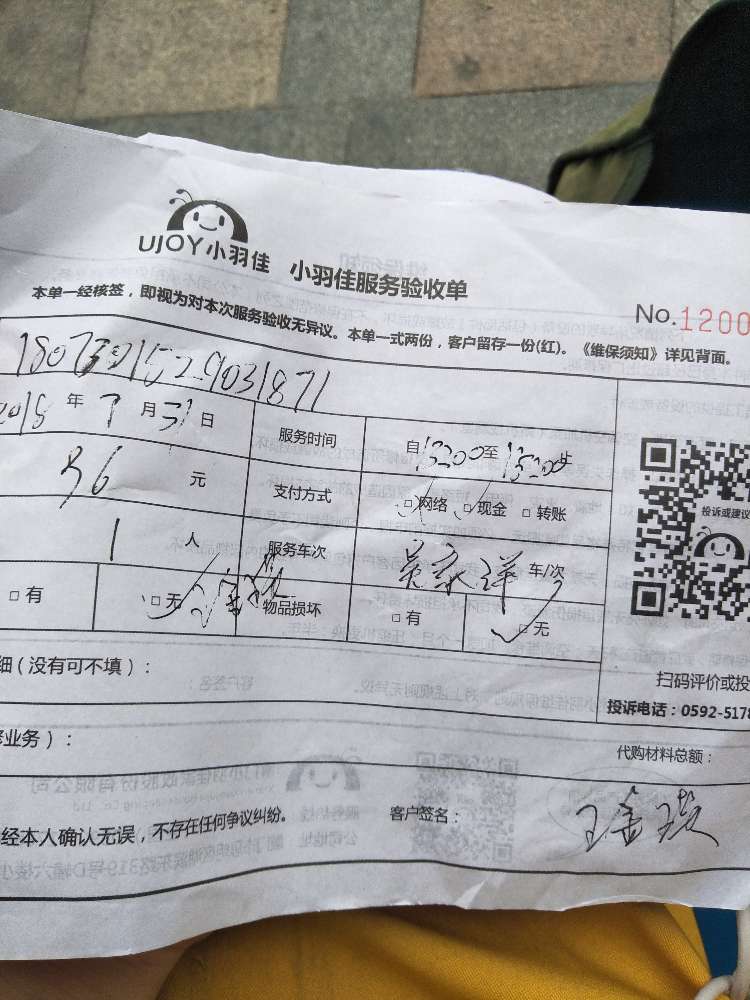 UJOY小羽佳 小羽佳服务验收单
本单一经核签，即视为对本次服务验收无异议。本单一式两份，客户留存一份(红)。《维保须知》详见背面。
No.1200
2018年7月31日 服务时间 自13:00至15:00止
36元 支付方式 □网络 □现金 □转账
1人 服务车次 车/次
□有 □无 物品损坏 □有 □无
投诉或建议
细(没有可不填)：
扫码评价或投
投诉电话：0592-5178
业务)： 代购材料总额：
经本人确认无误，不存在任何争议纠纷。 客户签名：